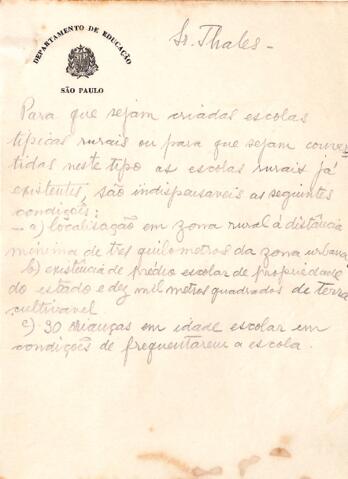 DEPARTAMENTO DE EDUCAÇÃO
SÃO PAULO
Sr. Thales -
Para que sejam criadas escolas
típicas rurais ou para que sejam conver-
tidas neste tipo as escolas rurais já
existentes, são indispensaveis as seguintes
condições:
- a) localisação em zona rural á distância
minima de tres quilometros da zona urbana
b) existência de prédio escolar de propriedade
do estado e dez mil metros quadrados de terra
cultivavel
c) 30 crianças em idade escolar em
condições de frequentarem a escola.